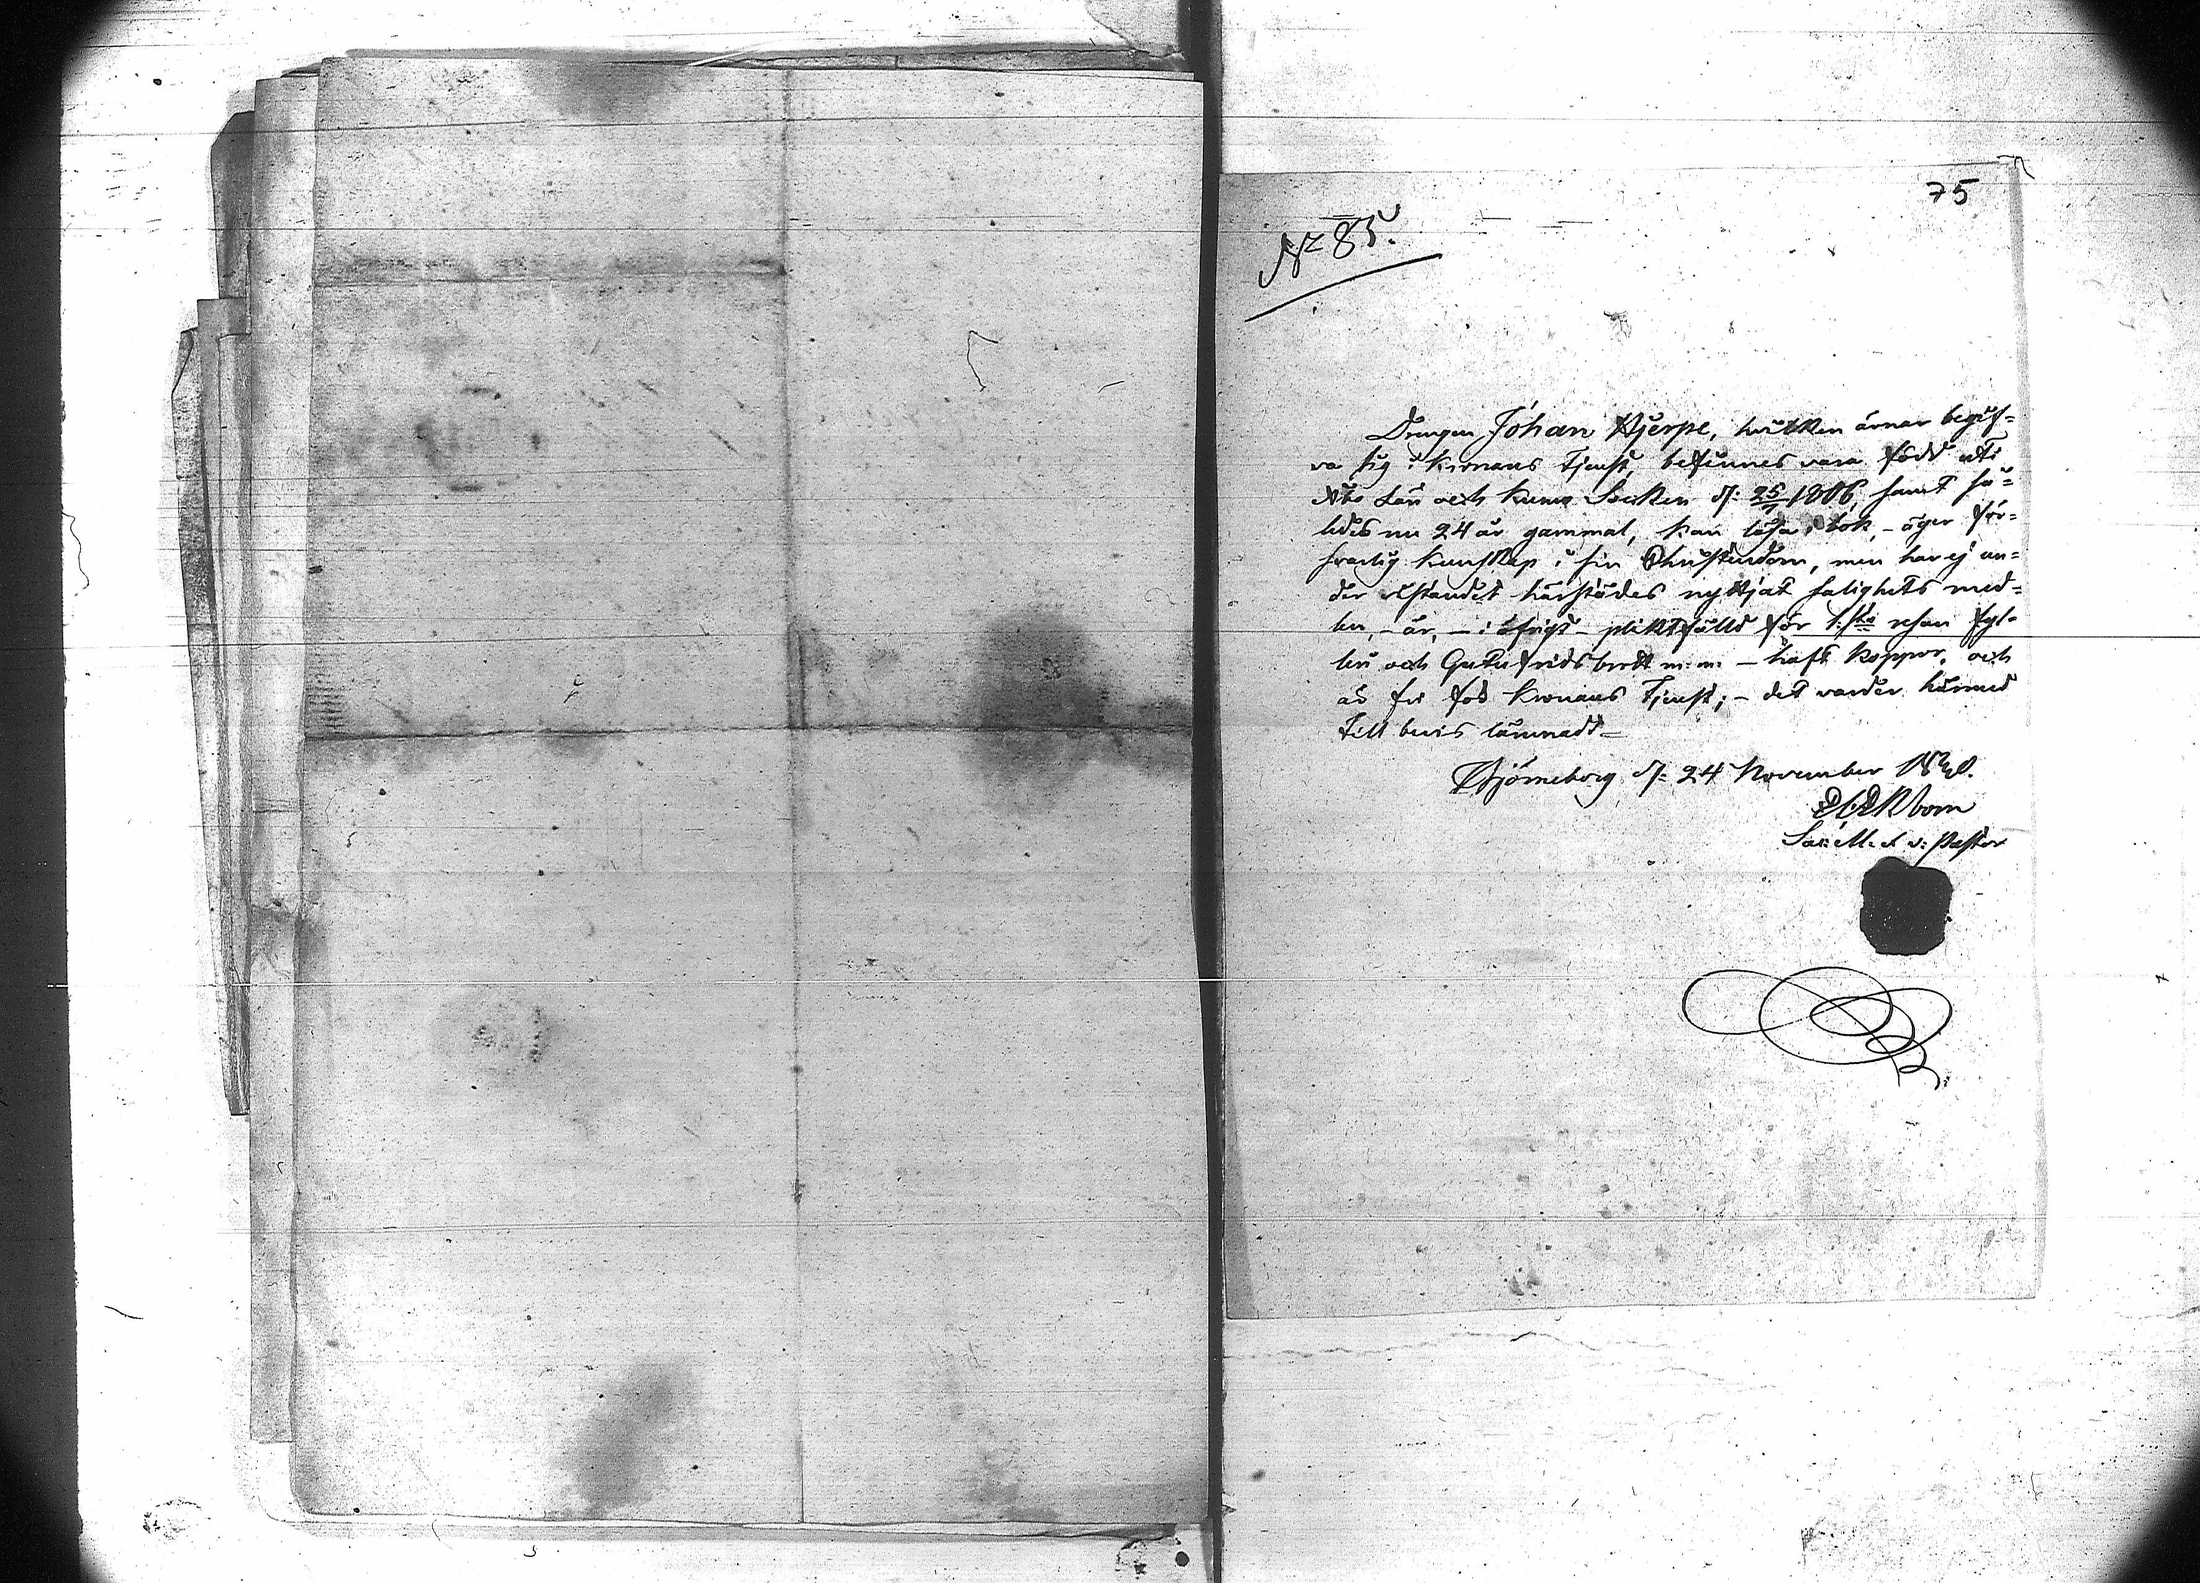 75
No 85.
Drengen Johan Hjerpe, hvilken ärnar begif-
va sig i Kronans Tjenst, befinnes vara född uti
Åbo Län och Kumo Socken d: 25/ 1806, samt så-
ledes nu 24 år gammal, kan läsa i bok, - äger för-
svarlig kunskap i sin Christendom, men har ej un-
der vistandet härstädes nyttjat salighets med-
len, - är, - i öfrigt - pliktfälld för 1:sta resan fyl-
leri och Gatufridsbrott m: m: - haft koppor, och
är fri för Kronans Tjenst; - det varder härmed
till bevis lämnadt =
Björneborg d: 24 November 1830.
Sac: M. v: Pastor